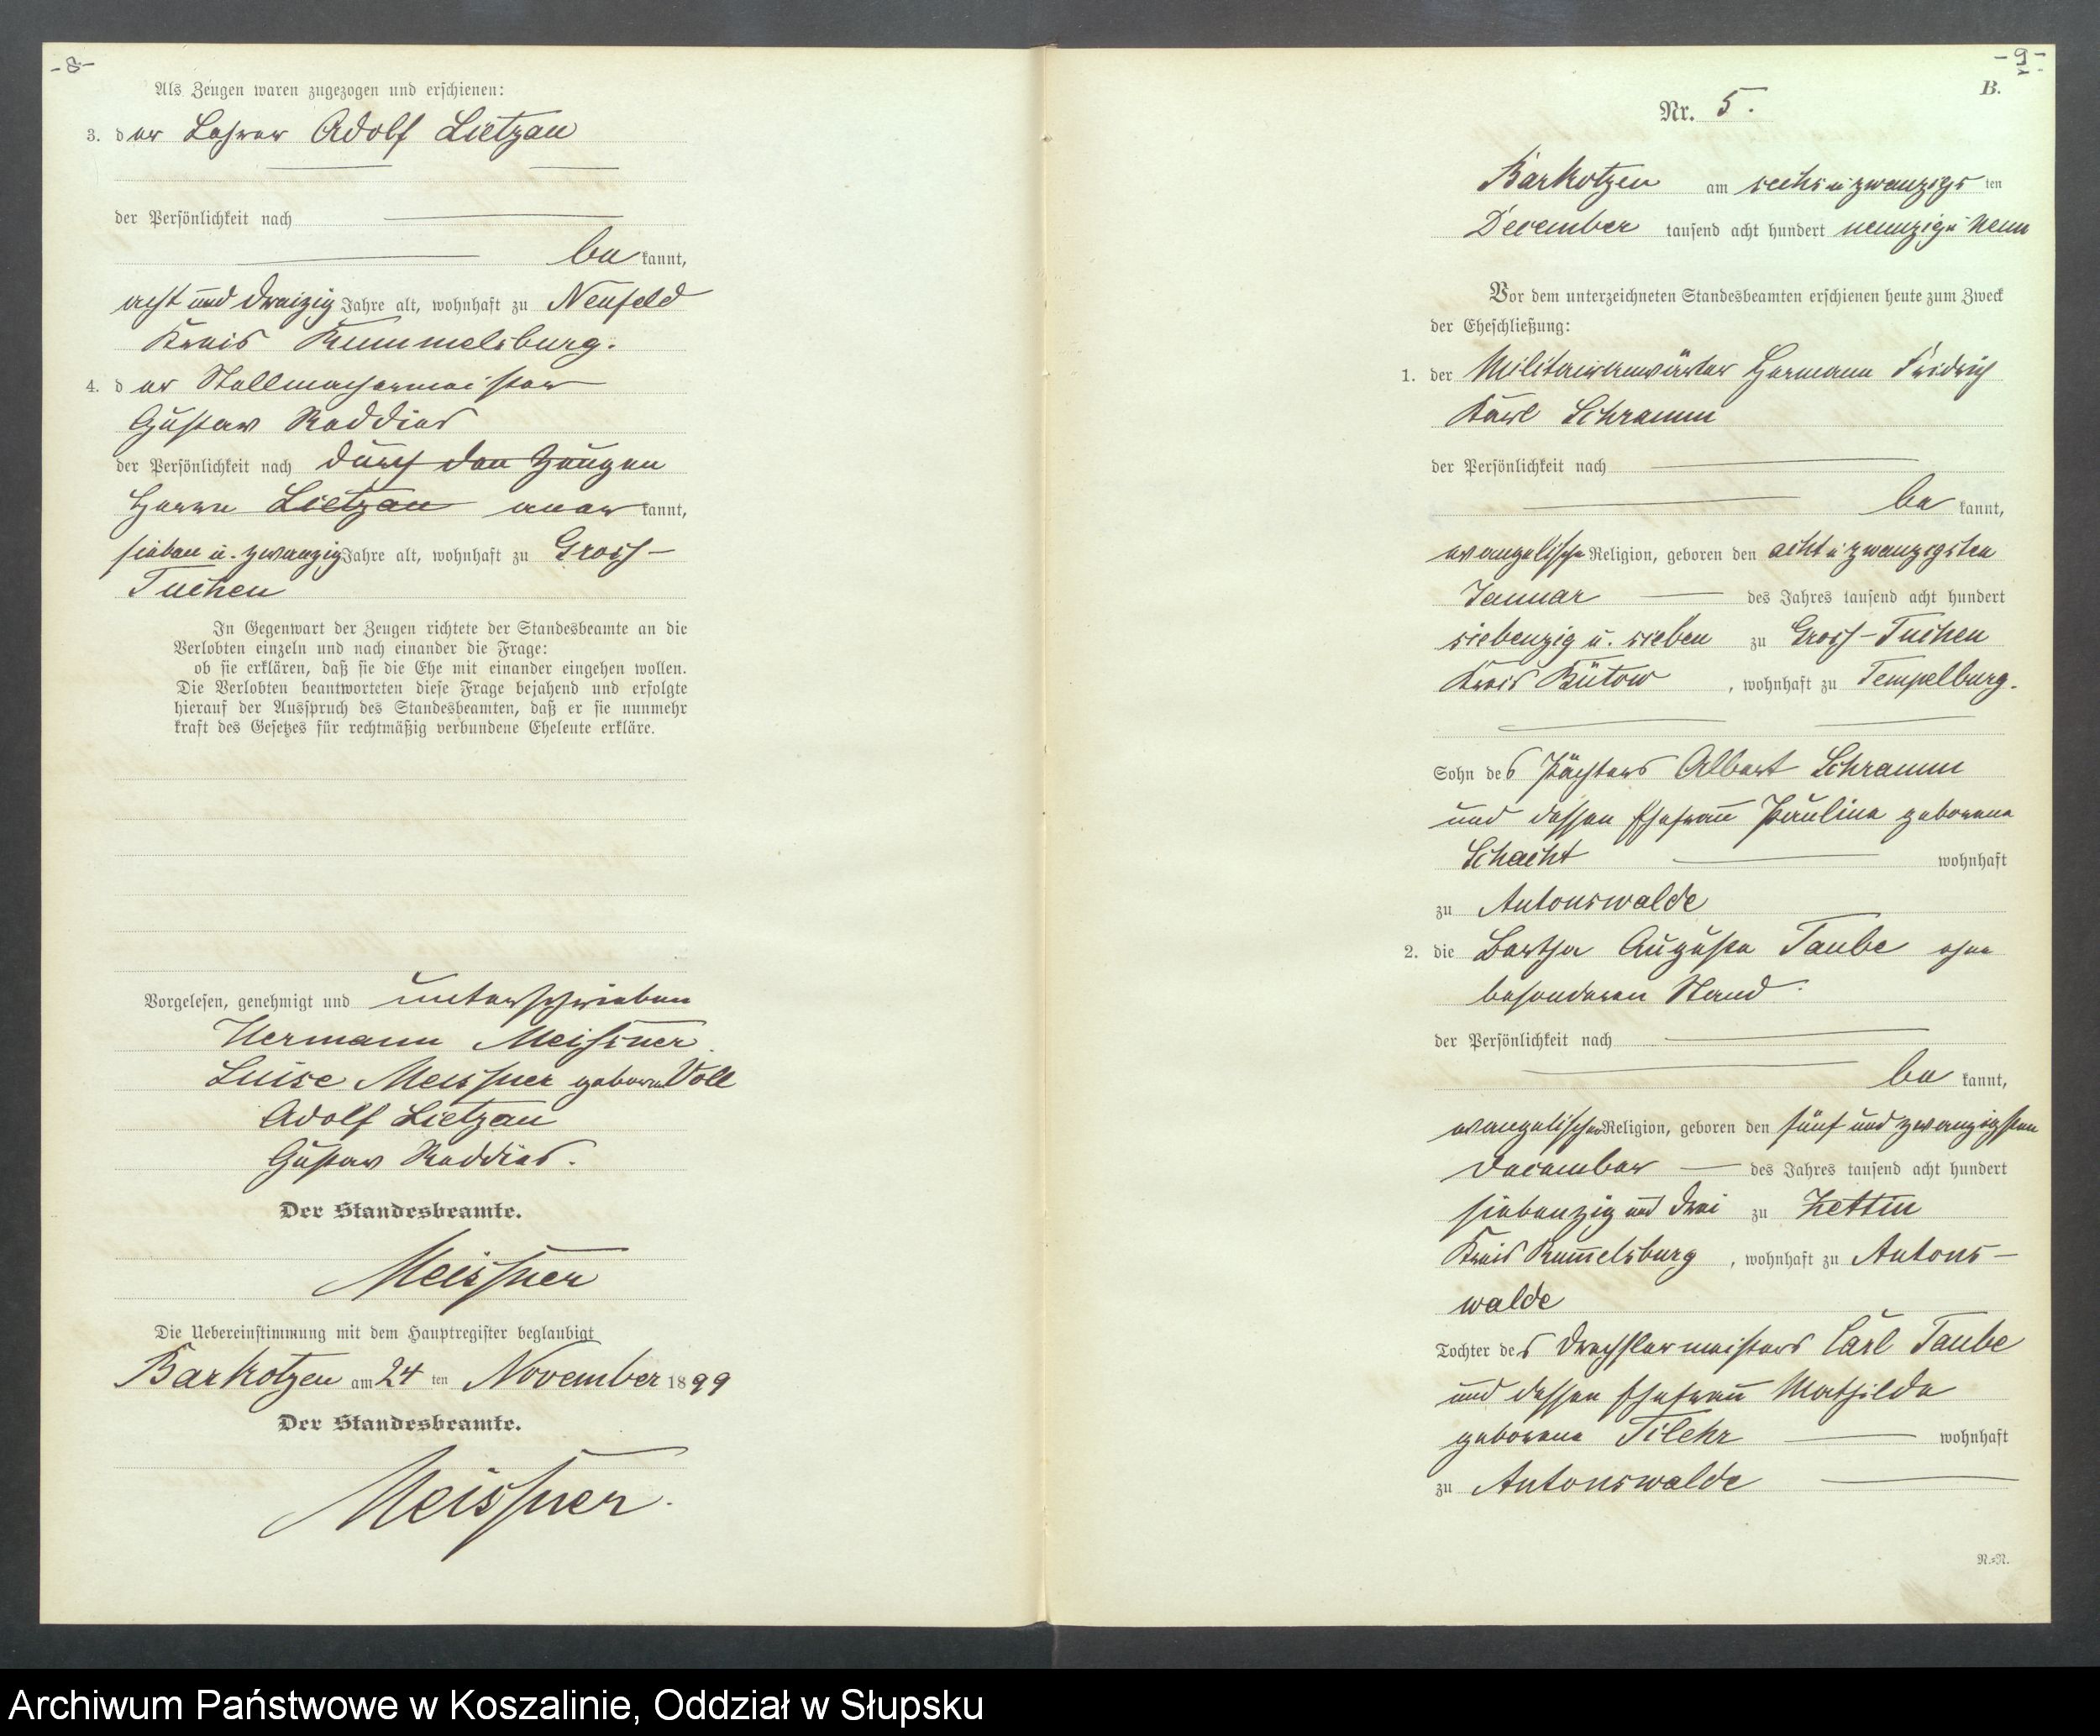 -8-
Als Zeugen waren zugezogen und erschienen:
3. der Lehrer Adolf Lietzau
der Persönlichkeit nach
be kannt,
acht und dreizig Jahre alt, wohnhaft zu Neufeld
Kreis Rummelsburg.
4. der Stellmachermeister
Gustav Raddies
der Persönlichkeit nach durch den Zeugen
Herrn Lietzau aner kannt,
sieben u. zwanzig Jahre alt, wohnhaft zu Gross-
Tuchen
In Gegenwart der Zeugen richtete der Standesbeamte an die
Verlobten einzeln und nach einander die Frage:
ob sie erklären, daß sie die Ehe mit einander eingehen wollen.
Die Verlobten beantworteten diese Frage bejahend und erfolgte
hierauf der Ausspruch des Standesbeamten, daß er sie nunmehr
kraft des Gesetzes für rechtmäßig verbundene Eheleute erkläre.
Vorgelesen, genehmigt und unterschrieben
Hermann Meissner
Luise Meissner geborne Voll
Adolf Lietzau
Gustav Raddies.
Der Standesbeamte.
Meissner
Die Uebereinstimmung mit dem Hauptregister beglaubigt
Barkotzen am 24 ten November 1899
Der Standesbeamte.
Meissner.
-9-
B.
Nr. 5.
Barkotzen am sechs u zwanzigs ten
December tausend acht hundert neunzig u neun
Vor dem unterzeichneten Standesbeamten erschienen heute zum Zweck
der Eheschließung:
1. der Militairanwärter Hermann Fridrich
Karl Schramm
der Persönlichkeit nach
be kannt,
evangelische Religion, geboren den acht u zwanzigsten
Januar des Jahres tausend acht hundert
siebenzig u. sieben zu Gross-Tuchen
Kreis Bütow, wohnhaft zu Tempelburg.
Sohn des Pächters Albert Schramm
und dessen Ehefrau Pauline geborene
Schacht wohnhaft
zu Antonswalde
2. die Bertha Auguste Taube ohne
besonderen Stand.
der Persönlichkeit nach
be kannt,
evangelischer Religion, geboren den fünf und zwanzigsten
December des Jahres tausend acht hundert
siebenzig und drei zu Zettin
Kreis Rummelsburg, wohnhaft zu Antons-
walde
Tochter des Drechslermeisters Carl Taube
und dessen Ehefrau Mathilde
geborene wohnhaft
zu Antonswalde
N.=N.
Archiwum Państwowe w Koszalinie, Oddział w Słupsku